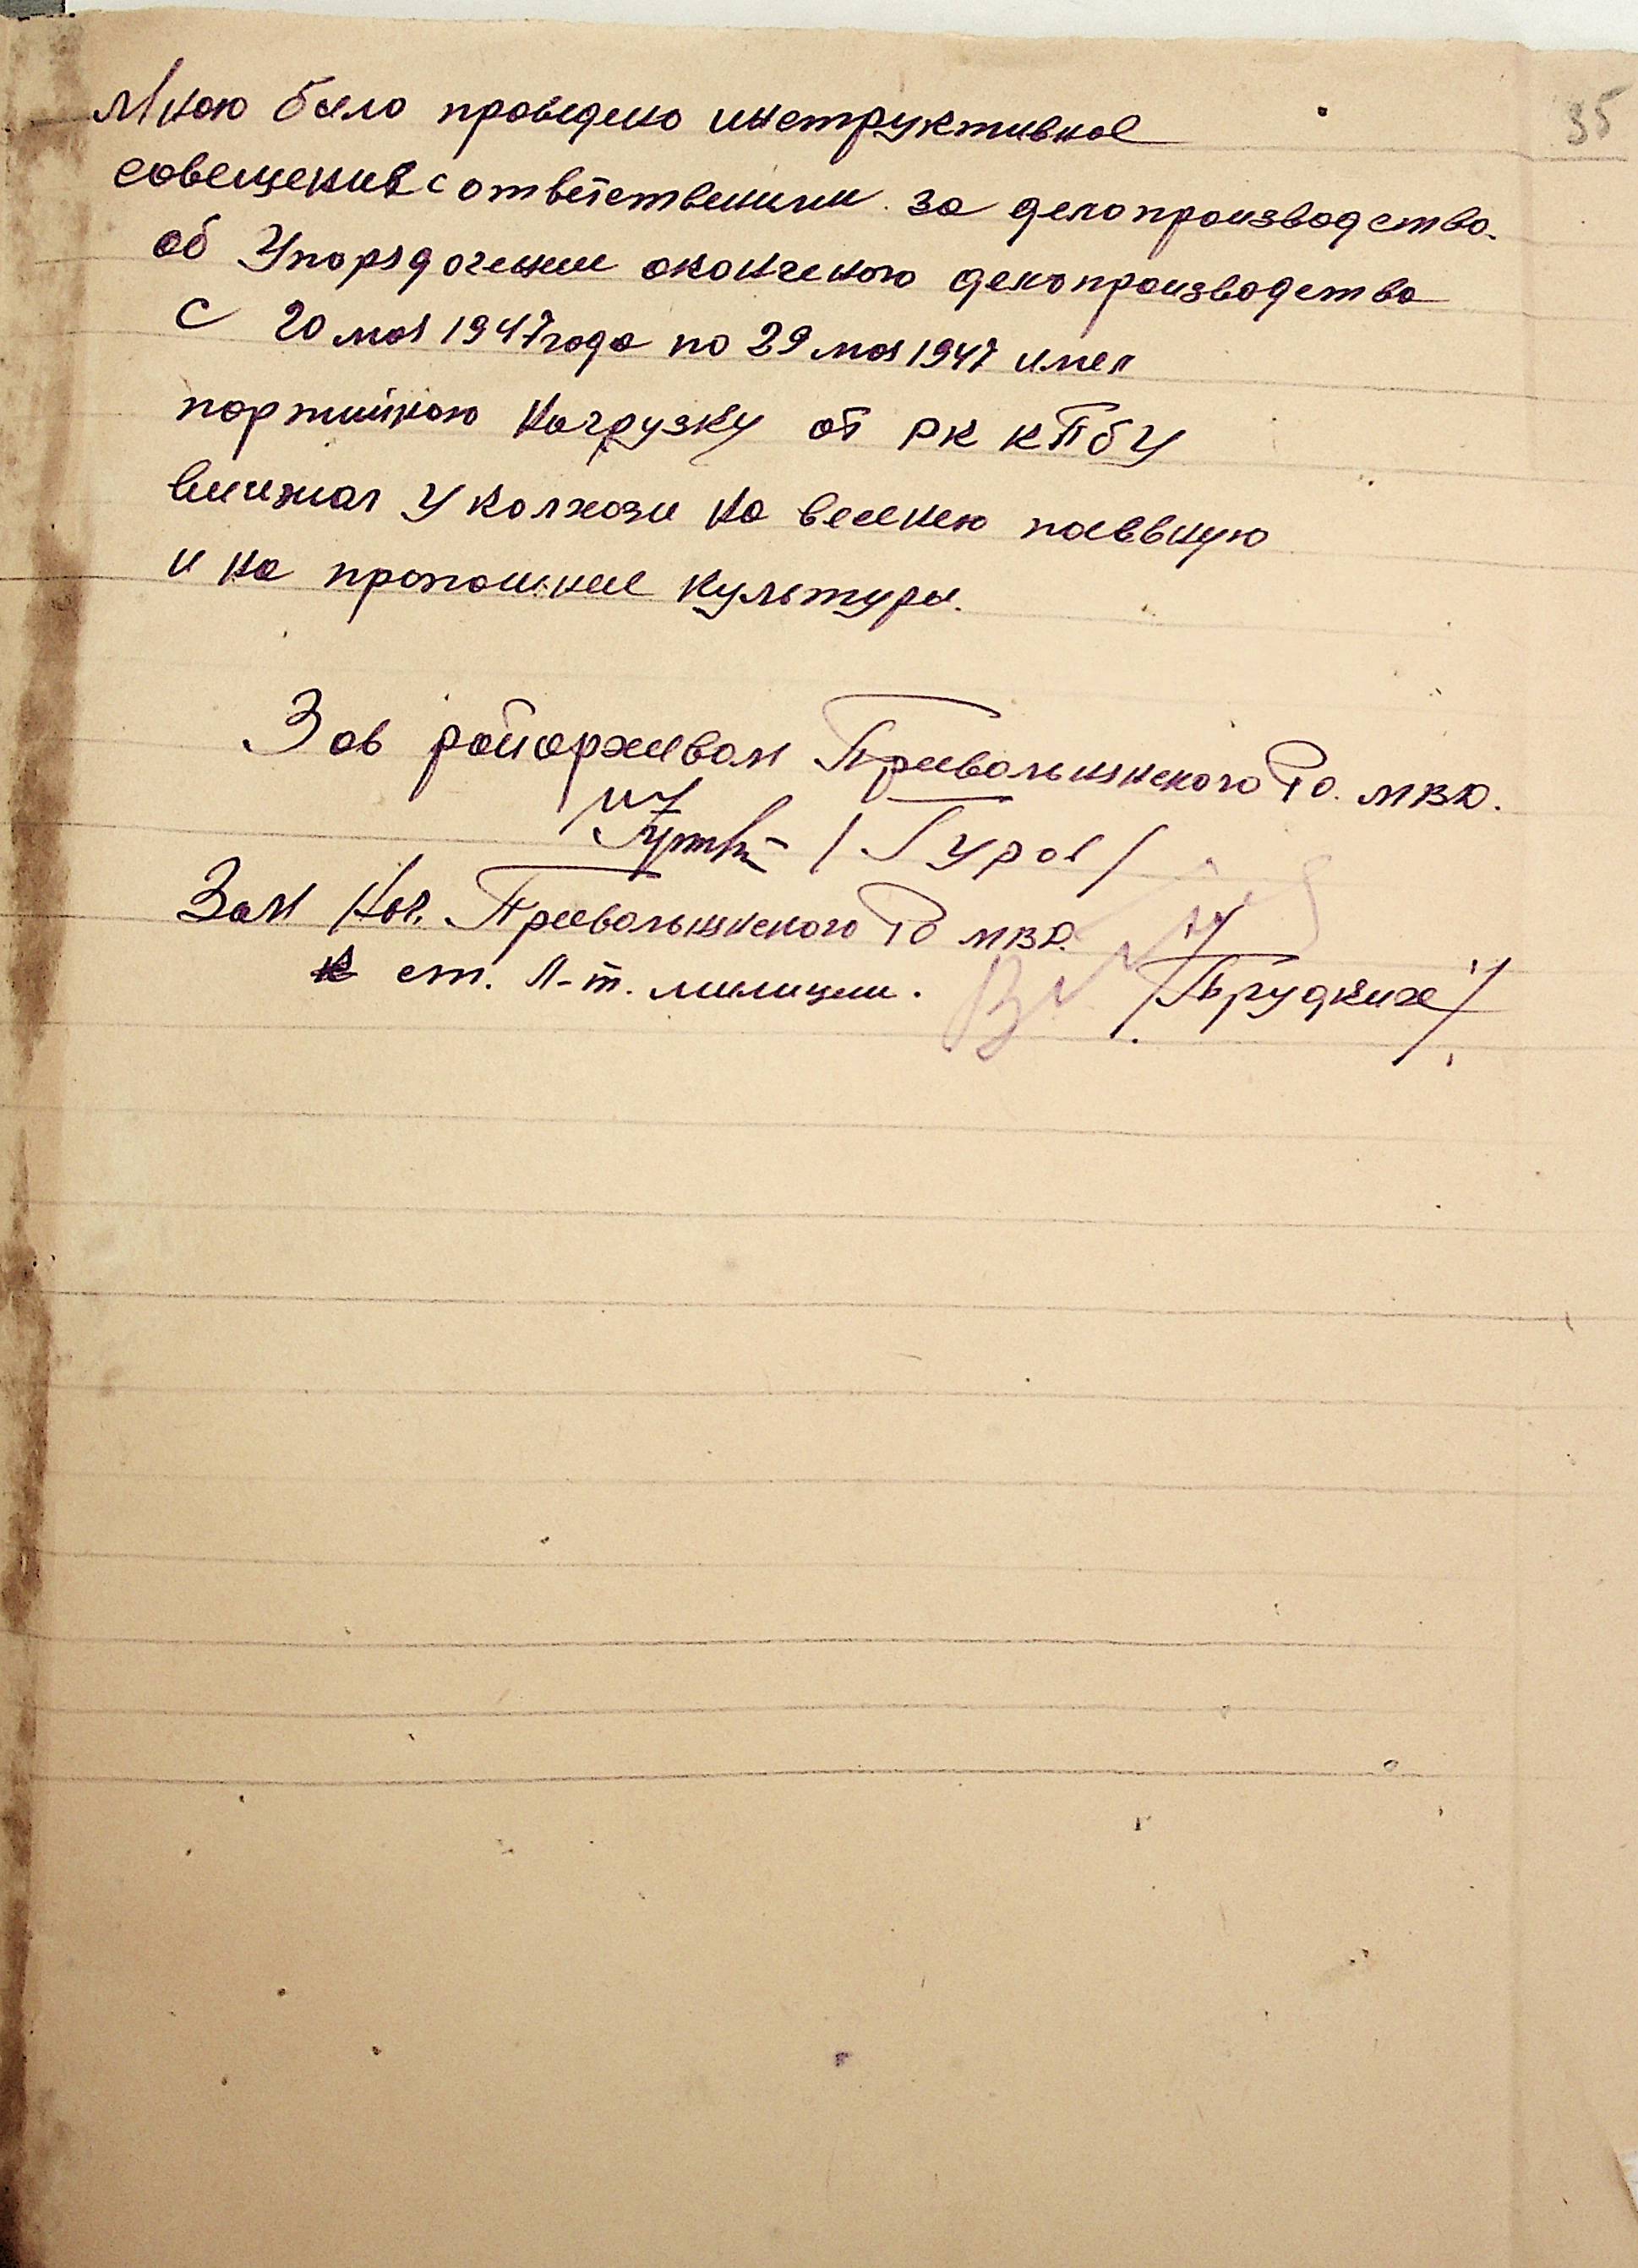 35
Мною было проведено инструктивное
совещение с ответственими за делопроизводство.
об Упорядочении оконченого делопроизводства
С 20 мая 1947 года по 29 мая 1947 имел
партийною Нагрузку от РК КПбУ
виижал У колхози на веснею посевную
и на пропошние культуры.
Зав райархивам Привольнянского Ро. МВД.
/Гура/
Зам Нач. Привольнянского Ро МВД.
ст. л-т. милиции.